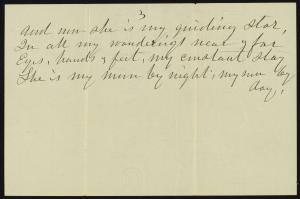 3
And now she is my guiding star,
In all my wanderings near & far
Eyes, hands & feet, my constant stay
She is my moon by night, my sun by
day,